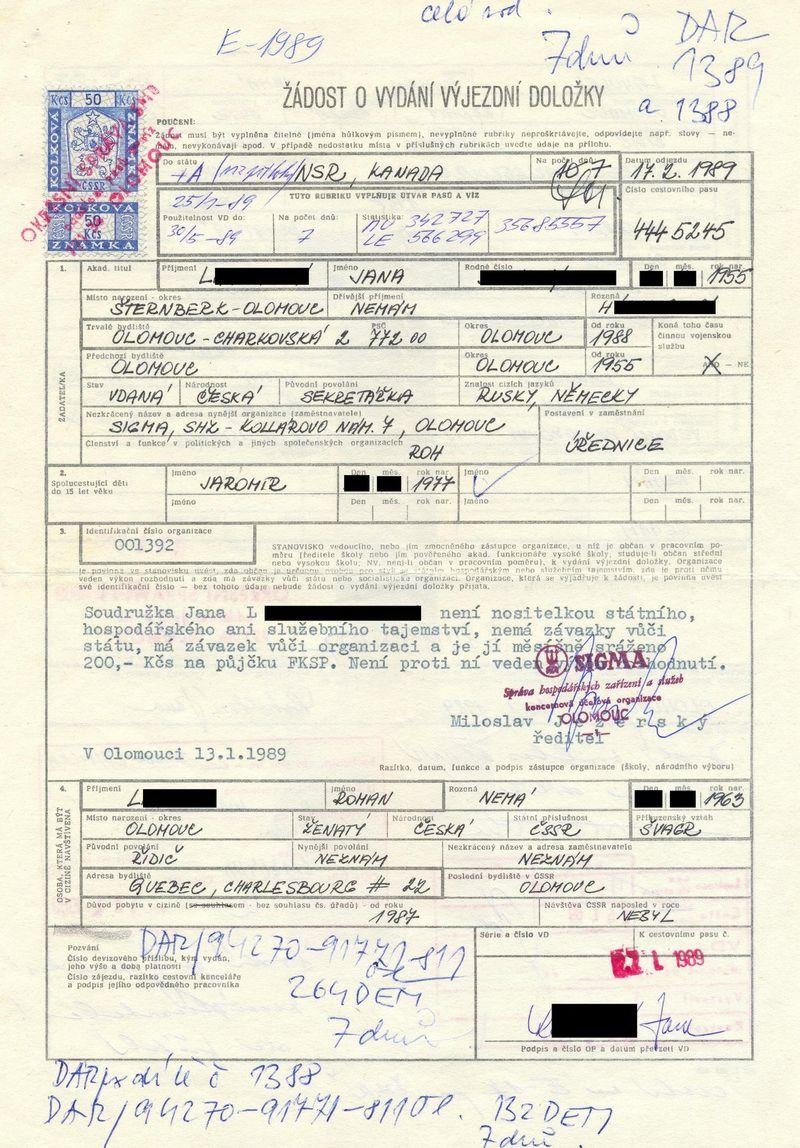 celé rod.
E-1989
7dnů
DAR
1389
a. 1388
ŽÁDOST O VYDÁNÍ VÝJEZDNÍ DOLOŽKY
50
Kčs
KOLKOVÁ
ČSSR
KOLKOVÁ
50
Kčs
ZNÁMKA
OLOMOUC
POUČENÍ:
Žádost musí být vyplněna čitelně (jména hůlkovým písmem), nevyplněné rubriky neproškrtávejte, odpovídejte např. slovy — ne-
mám, nevykonávají apod. V případě nedostatku místa v příslušných rubrikách uveďte údaje na přílohu.
Do státu
NSR, KANADA
Na počet dnů
Datum odjezdu
17.2. 1989
25/1-89
TUTO RUBRIKU VYPLŇUJE ÚTVAR PASŮ A VÍZ
Číslo cestovního pasu
444 5245
Použitelnost VD do:
30/5-89
Na počet dnů:
7
Statistika:
AU 342727
LE 566299
35685557
1.
ŽADATEL/KA
Akad. titul
Příjmení
L
Jméno
JANA
Rodné číslo
Den měs. rok nar.
1955
Místo narození - okres
ŠTERNBERK-OLOMOUC
Dřívější příjmení
NEMÁM
Rozená
H
Trvalé bydliště
OLOMOUC-CHARKOVSKÁ 2
PSČ
772 00
Okres
OLOMOUC
Od roku
1988
Koná toho času
činnou vojenskou
službu
ANO — NE
Předchozí bydliště
OLOMOUC
Okres
OLOMOUC
Od roku
1955
Stav
VDANÁ
Národnost
ČESKÁ
Původní povolání
SEKRETÁŘKA
Znalost cizích jazyků
RUSKY, NĚMECKY
Nezkrácený název a adresa nynější organizace (zaměstnavatele)
SIGMA, SHZ - KOLLÁROVO NÁM. 7, OLOMOUC
Postavení v zaměstnání
ÚŘEDNICE
Členství a funkce v politických a jiných společenských organizacích
ROH
2.
Spolucestující děti
do 15 let věku
Jméno
JAROMÍR
Den měs. rok nar.
1977
Jméno
Den měs. rok nar.
Jméno
Den měs. rok nar.
Jméno
Den měs. rok nar.
3.
Identifikační číslo organizace
001392
STANOVISKO vedoucího, nebo jím zmocněného zástupce organizace, u níž je občan v pracovním po-
měru (ředitele školy nebo jím pověřeného akad. funkcionáře vysoké školy, studuje-li občan střední
nebo vysokou školu; NV, není-li občan v pracovním poměru), k vydání výjezdní doložky. Organizace
je povinna ve stanovisku uvést, zda občan je určenou osobou pro styk se státním, hospodářským nebo služebním tajemstvím, zda je proti němu
veden výkon rozhodnutí a zda má závazky vůči státu nebo socialistické organizaci. Organizace, která se vyjadřuje k žádosti, je povinna uvést
své identifikační číslo — bez tohoto údaje nebude žádost o vydání výjezdní doložky přijata.
Soudružka Jana L není nositelkou státního,
hospodářského ani služebního tajemství, nemá závazky vůči
státu, má závazek vůči organizaci a je jí měsíčně sráženo
200,- Kčs na půjčku FKSP. Není proti ní veden výkon rozhodnutí.
SIGMA
Správa hospodářských zařízení a služeb
koncernová účelová organizace
OLOMOUC
-1-
Miloslav Jezerský
ředitel
V Olomouci 13.1.1989
Razítko, datum, funkce a podpis zástupce organizace (školy, národního výboru)
4.
OSOBA, KTERÁ MÁ BÝT
V CIZINĚ NAVŠTÍVENA
Příjmení
L
Jméno
ROMAN
Rozená
NEMÁ
Den měs. rok nar.
1963
Místo narození - okres
OLOMOUC
Stav
ŽENATÝ
Národnost
ČESKÁ
Státní příslušnost
ČSSR
Příbuzenský vztah
ŠVAGR
Původní povolání
ŘIDIČ
Nynější povolání
NEZNÁM
Nezkrácený název a adresa zaměstnavatele
NEZNÁM
Adresa bydliště
QUEBEC, CHARLESBOURG # 22
Poslední bydliště v ČSSR
OLOMOUC
Důvod pobytu v cizině (se souhlasem - bez souhlasu čs. úřadů) - od roku
1987
Návštěva ČSSR naposled v roce
NEBYL
Pozvání
Číslo devizového příslibu, kým vydán,
jeho výše a doba platnosti
Číslo zájezdu, razítko cestovní kanceláře
a podpis jejího odpovědného pracovníka
DAR/94270-91771-811
264 DEM
7 dnů
Série a číslo VD
K cestovnímu pasu č.
1989
Jana
Podpis a číslo OP a datum převzetí VD
č 1388
DAR/94270-91771-811 Ol. 132 DEM
7 dnů.